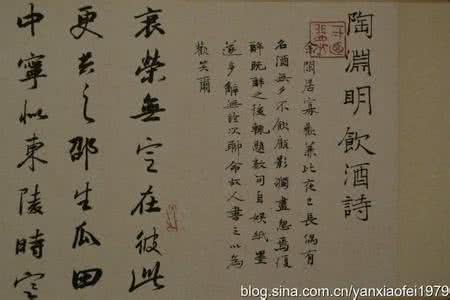 陶淵明飲酒詩
余閑居寡歡兼比夜已長偶有
名酒無夕不飲顧影獨盡忽焉復
醉既醉之後輒題數句自娛紙墨
遂多辭無詮次聊命故人書之以為
歡笑爾
衰榮無定在彼此
更共之邵生瓜田
中寧似東陵時寒
blog.sina.com.cn/yanxiaofei1979